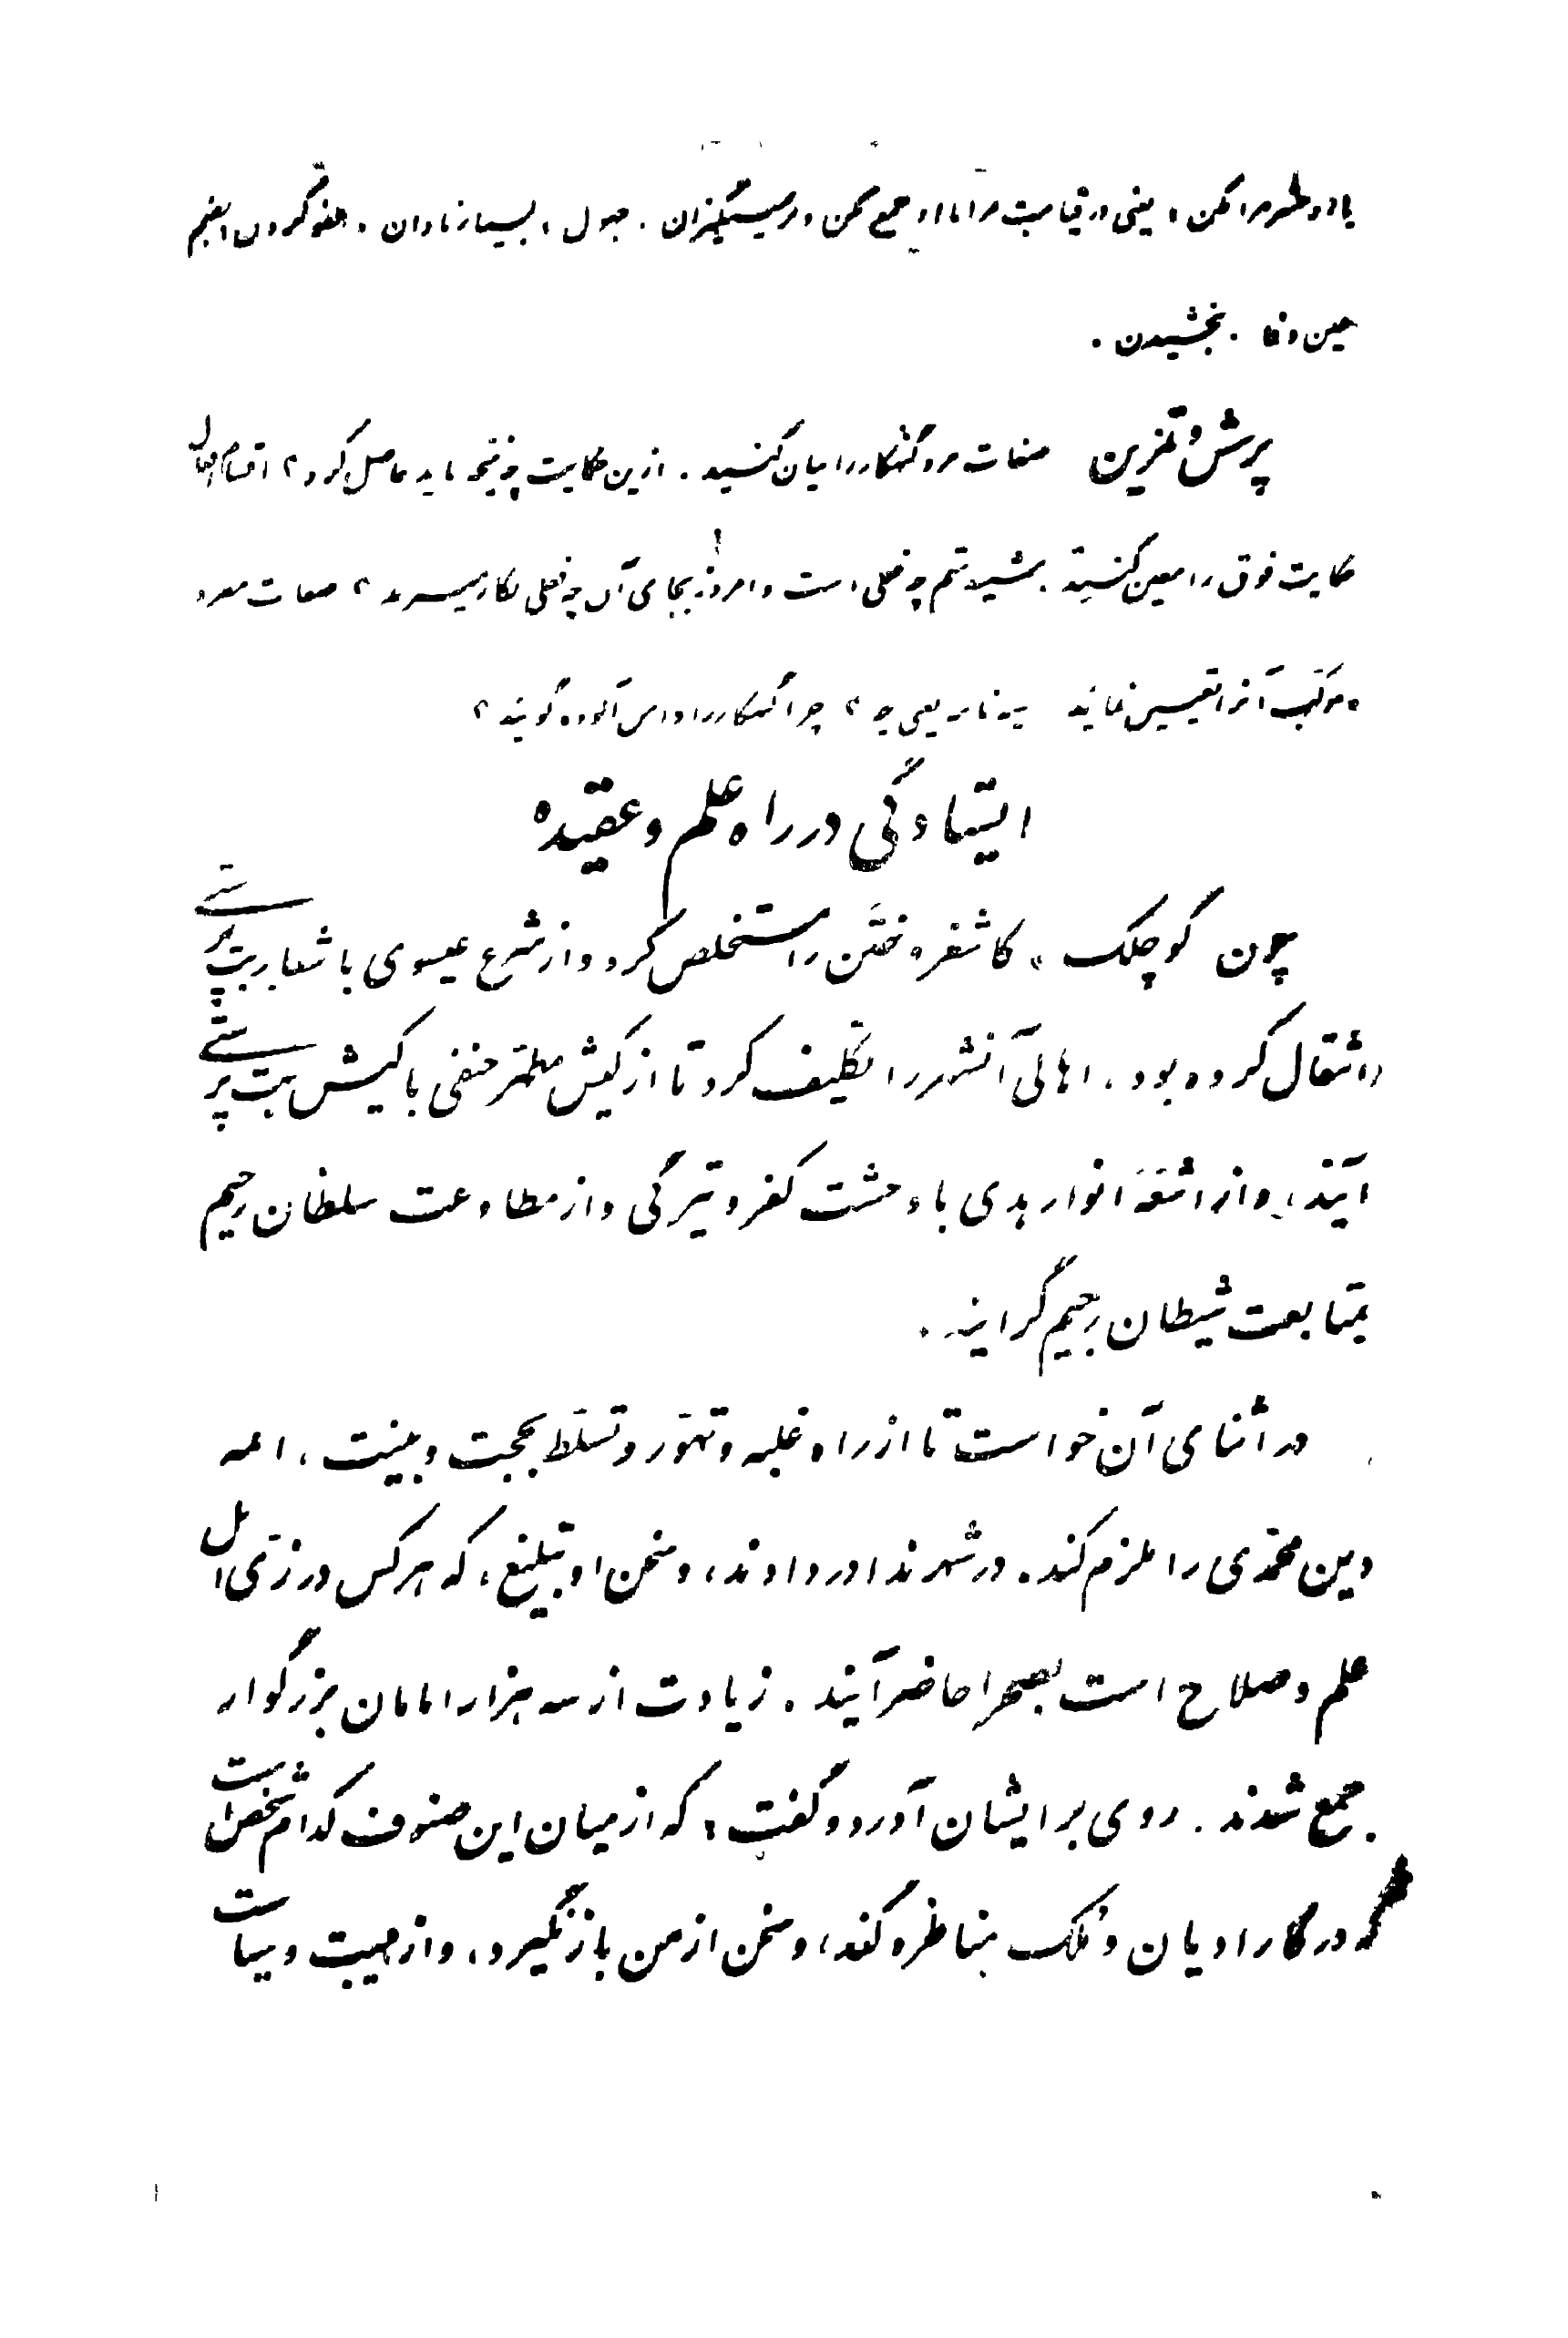 با او حشر مرا مکن، یعنی در قیامت مرا با او جمع مکن در رستخیزان. جهول، بسیار نادان. عفو کردن
حین دغا. بخشیدن.
پرسش و تمرین صفات مرد گنهکار را بیان کنید. از این حکایت چه نتیجه باید حاصل کرد؟ اقسام افعال
حکایت فوق را معین کنید. چه فعلی است و امروز بجای آن چه فعلی بکار میبرند؟ صفات مفرد
و مرکب آنرا تعیین نمائید یعنی چه؟ چرا گنهکار را دامن آلوده گویند؟
ایستادگی در راه علم و عقیده
چون کوچلک، کاشغر و ختن را مستخلص کرد و از شرع عیسوی با شعار بت پرستی
انتقال کرده بود، اهالی آنشهر را تکلیف کرد تا از کیش مطهر حنفی با کیش بت پرستی
آیند، و از اشعه انوار هدی با وحشت کفر و تیرگی و از مطاوعت سلطان رحیم
بمتابعت شیطان رجیم گرایند.
در اثنای آن خواست تا از راه غلبه و تهور و تسلط بحجت و بینت، ائمه
دین محمدی را ملزم کند. در شهر ندا در دادند، و سخن او تبلیغ، که هر کس در زی اهل
علم و صلاح است بصحرا حاضر آیند. زیادت از سه هزار امامان بزرگوار
جمع شدند. روی بر ایشان آورد و گفت: که از میان این صنوف کدام شخص است
که در کار ادیان و ملک مناظره کند، و سخن از من بازنگیرد، و از هیبت و سیاست